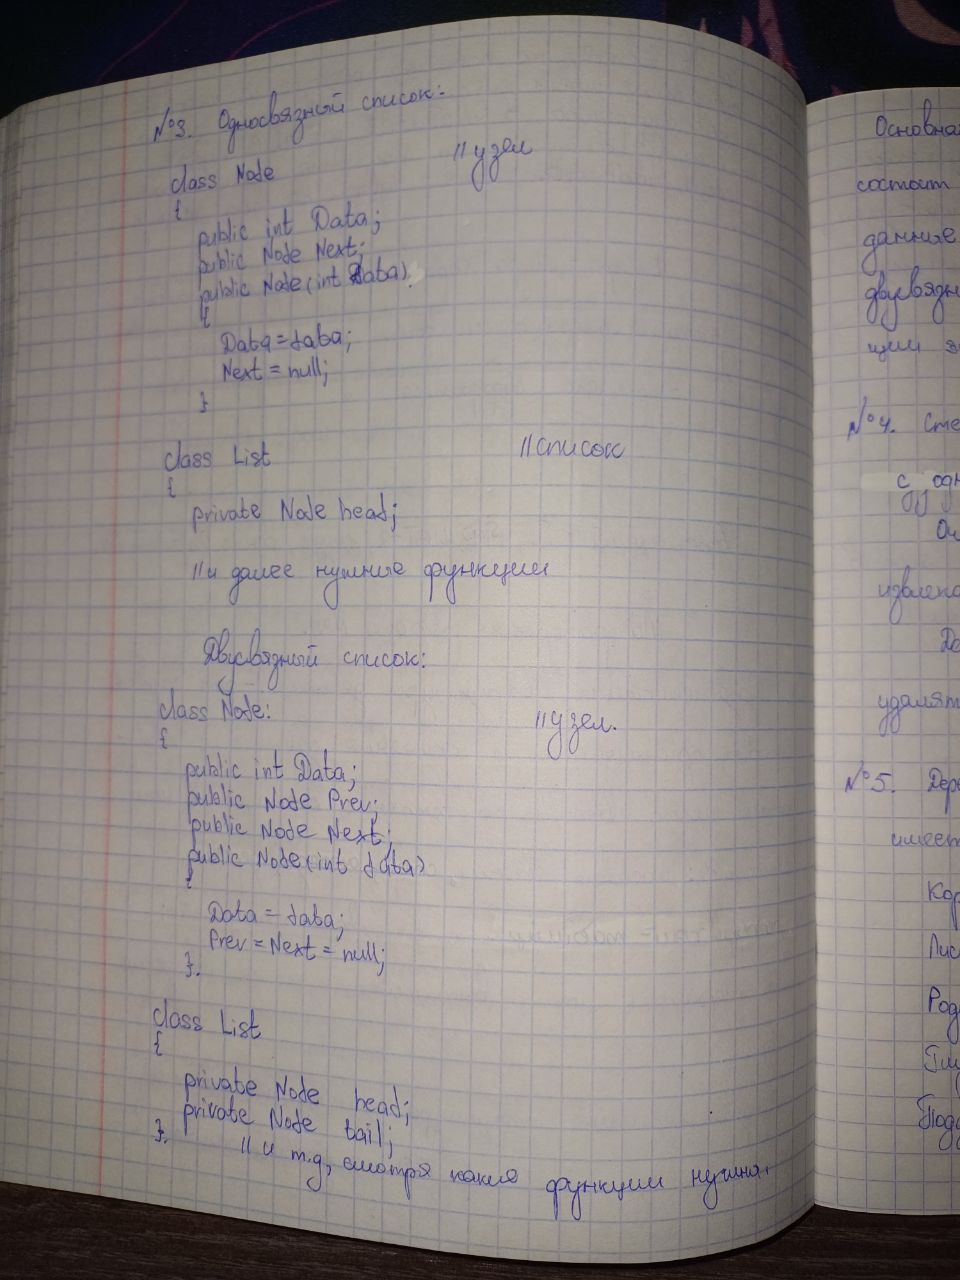 №3. Односвязный список:
class Node //узел
{
public int Data;
public Node Next;
public Node(int data)
{
Data = data;
Next = null;
}
class List //список
{
private Node head;
//и далее нужные функции
Двусвязный список:
class Node: //узел.
{
public int Data;
public Node Prev;
public Node Next;
public Node(int data)
{
Data = data;
Prev = Next = null;
}.
class List
{
private Node head;
private Node tail;
}. // и т.д, смотря какие функции нужна.
Основна
состоит
данные
двусвязн
щии з
№4. Сте
с одн
Оч
извлеч
удалят
№5. Дере
имеет
Кор
Лис
Род
Подд